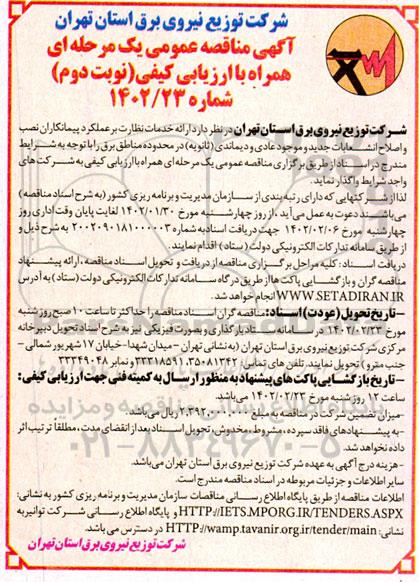 شرکت توزیع نیروی برق استان تهران
آگهی مناقصه عمومی یک مرحله ای
همراه با ارزیابی کیفی (نوبت دوم)
شماره ۱۴۰۲/۲۳
شرکت توزیع نیروی برق استان تهران در نظر دارد ارائه خدمات نظارت بر عملکرد پیمانکاران نصب
و اصلاح انشعابات جدید و موجود عادی و دیماندی (ثانویه) در محدوده مناطق برق را با توجه به شرایط
مندرج در اسناد از طریق برگزاری مناقصه عمومی یک مرحله ای همراه با ارزیابی کیفی به شرکت های
واجد شرایط واگذار نماید.
لذا از شرکتهایی که دارای رتبه بندی از سازمان مدیریت و برنامه ریزی کشور (به شرح اسناد مناقصه)
می باشند دعوت به عمل می آید، از روز چهارشنبه مورخ ۱۴۰۲/۰۱/۳۰ لغایت پایان وقت اداری روز
چهارشنبه مورخ ۱۴۰۲/۰۲/۰۶ جهت دریافت اسناد به شماره ۲۰۰۲۰۹۰۱۸۱۰۰۰۰۰۳ به شرح ذیل و
از طریق سامانه تدارکات الکترونیکی دولت (ستاد) اقدام نمایند.
دریافت اسناد: کلیه مراحل برگزاری مناقصه از دریافت و تحویل اسناد مناقصه، ارائه پیشنهاد
مناقصه گران و بازگشایی پاکت ها از طریق درگاه سامانه تدارکات الکترونیکی دولت (ستاد) به آدرس
WWW.SETADIRAN.IR انجام خواهد شد.
-تاریخ تحویل (عودت) اسناد: مناقصه گران اسناد مناقصه را حداکثر تا ساعت ۱۰ صبح روز شنبه
مورخ ۱۴۰۲/۰۲/۲۳ در سامانه ستاد بارگذاری و بصورت فیزیکی نیز به شرح اسناد تحویل دبیرخانه
مرکزی شرکت توزیع نیروی برق استان تهران (به نشانی تهران - میدان شهدا- خیابان ۱۷ شهریور شمالی -
جنب مترو) تحویل نمایند. تلفن های تماس: ۳۵۰۸۱۳۴۲، ۳۳۳۱۸۵۹۱ و نمابر ۳۳۳۴۹۰۴۸
-تاریخ بازگشایی پاکت های پیشنهاد به منظور ارسال به کمیته فنی جهت ارزیابی کیفی:
ساعت ۱۲ روز شنبه مورخ ۱۴۰۲/۰۲/۲۳ می باشد.
-میزان تضمین شرکت در مناقصه به مبلغ ۲.۳۹۲.۰۰۰.۰۰۰ ریال می باشد.
-به پیشنهادهای فاقد سپرده، مشروط، مخدوش، تحویل اسناد بعد از انقضای مدت، مطلقا ترتیب اثر
داده نخواهد شد.
-هزینه درج آگهی به عهده شرکت توزیع نیروی برق استان تهران می باشد.
سایر اطلاعات و جزئیات مربوطه در اسناد مناقصه مندرج است.
اطلاعات مناقصه از طریق پایگاه اطلاع رسانی مناقصات سازمان مدیریت و برنامه ریزی کشور به نشانی:
HTTP://IETS.MPORG.IR/TENDERS.ASPX و پایگاه اطلاع رسانی شرکت توانیر به
نشانی: HTTP://wamp.tavanir.org.ir/tender/main در دسترس می باشد.
شرکت توزیع نیروی برق استان تهران
۰۲۱-۸۸۳۴۹۶۷۰-۵